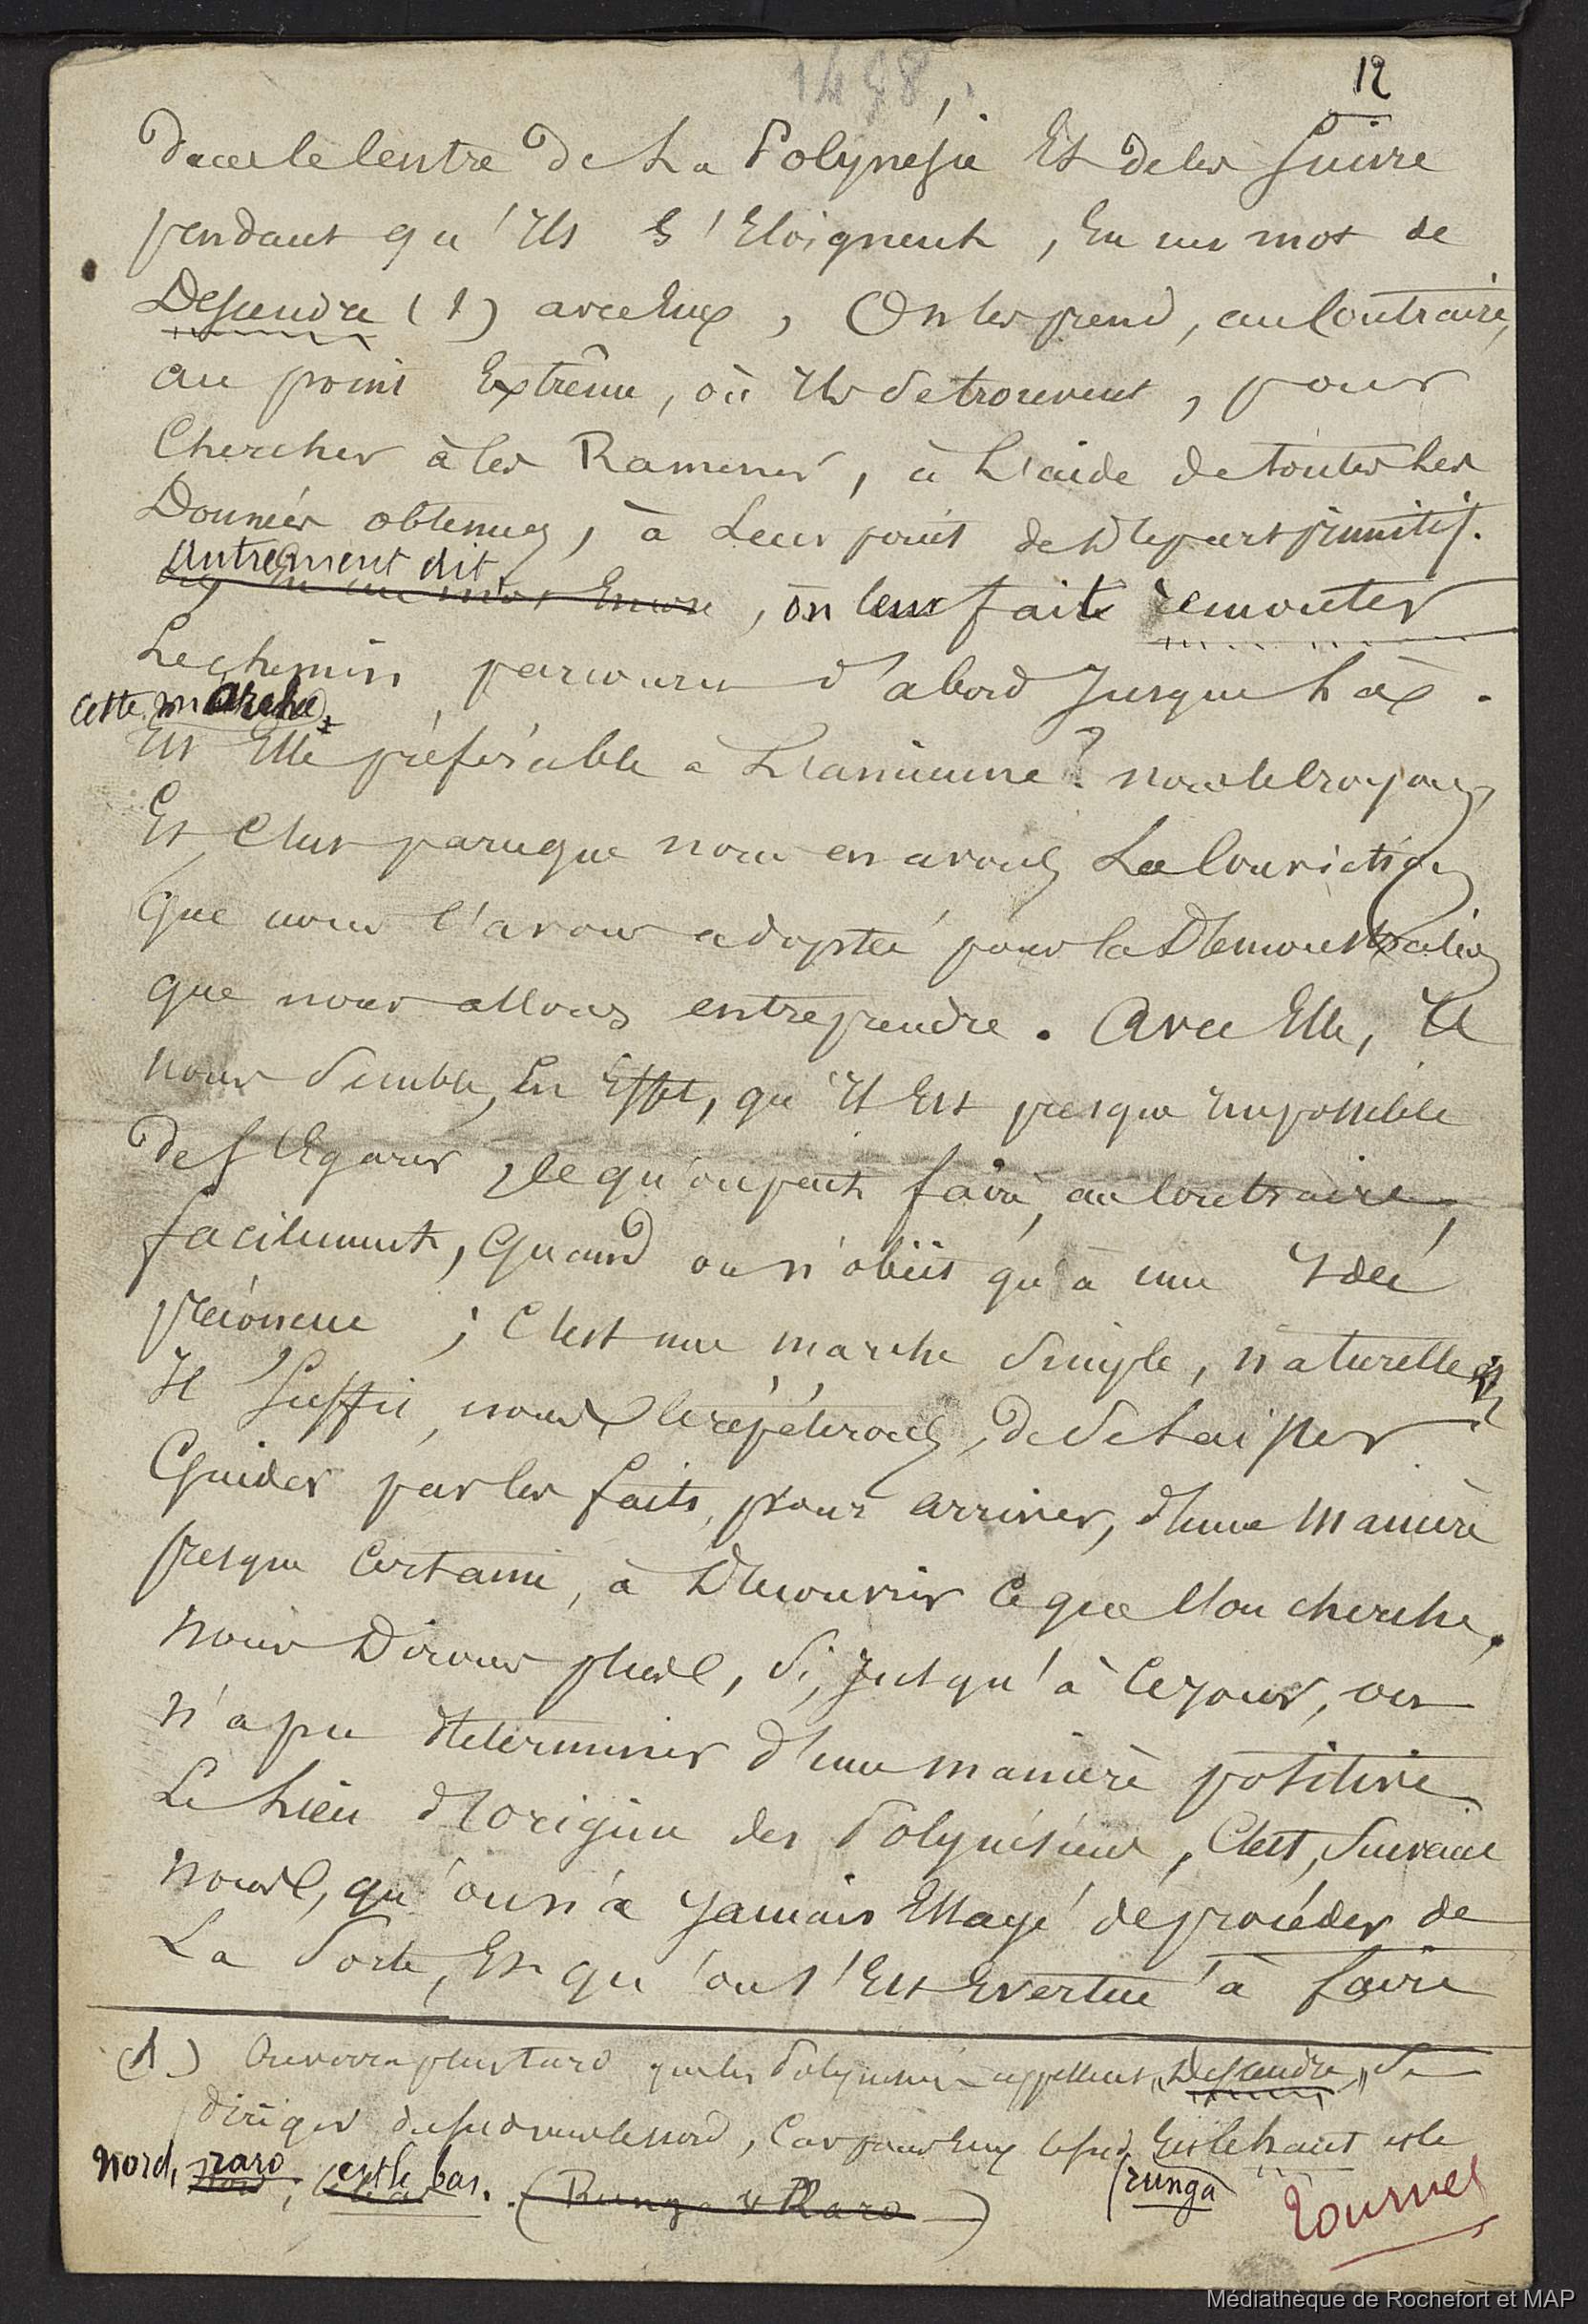 1498.
12
dans le Centre de La Polynésie Et de les suivre
pendant qu'ils s'Eloignent, En un mot de
Descendre (1) avec Eux, On les prend, au Contraire,
au point Extrême, où Ils se trouvent, pour
Chercher à les Ramener, à L'aide de toutes Les
Données obtenues, à Leur point de Départ primitif.
Autrement dit
En un mot Encore, on leur fait remonter
Le chemin parcouru d'abord Jusque Là.
Cette marche
Est Elle préférable a L'ancienne? nous le Croyons,
Et C'est parceque nous en avons La Conviction
Que nous l'avons adoptée pour la Démonstration
que nous allons entreprendre. Avec Elle, Il
nous Semble, En Effet, qu'il Est presque Impossible
de s'Egarer, Ce qu'on peut faire, au Contraire,
facilement, Quand on n'obéit qu'à une Idée
préconçue; C'est une marche Simple, naturelle
Il Suffit, nous le répéterons, de se Laisser
Guider par les faits, pour arriver, d'une manière
presque Certaine, à Découvrir Ce que l'on cherche.
Nous Dirons plus, Si, Jusqu'à Ce jour, on
n'a pu déterminer d'une manière positive
Le Lieu d'Origine des Polynésiens, C'est, Suivant
Nous, qu'on n'a Jamais Essayé de procéder de
La Sorte, Et qu'on s'Est Evertué à faire
(1) On verra plus tard que les Polynésiens appellent "Descendre" Se
diriger du sud vers le nord, Car pour Eux le sud Est le haut et le
(runga
Nord, raro est le bas.
Nord, le bas. (Runga & Raro)
Tournez
Médiathèque de Rochefort et MAP